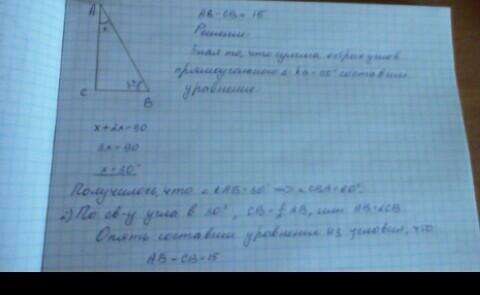 A
AB-CB=15
Решение:
Зная то, что сумма острых углов
прямоугольного составим
уравнение.
x
C
2x
B
x+2x=90
3x=90
x=30°
Получилось, что ∠CAB=30° => ∠CBA=60°.
2) По св-у угла в 30°, CB=½AB, или AB=2CB
Опять составим уравнение из условия, что
AB-CB=15